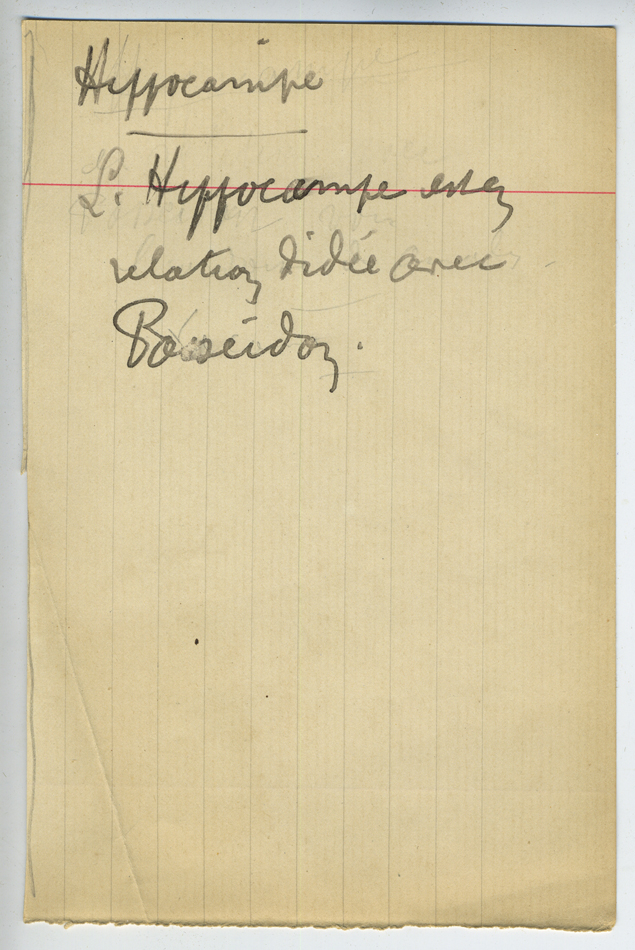 Hippocampe
L. Hippocampe est en
relation d'idée avec
Poseidon.